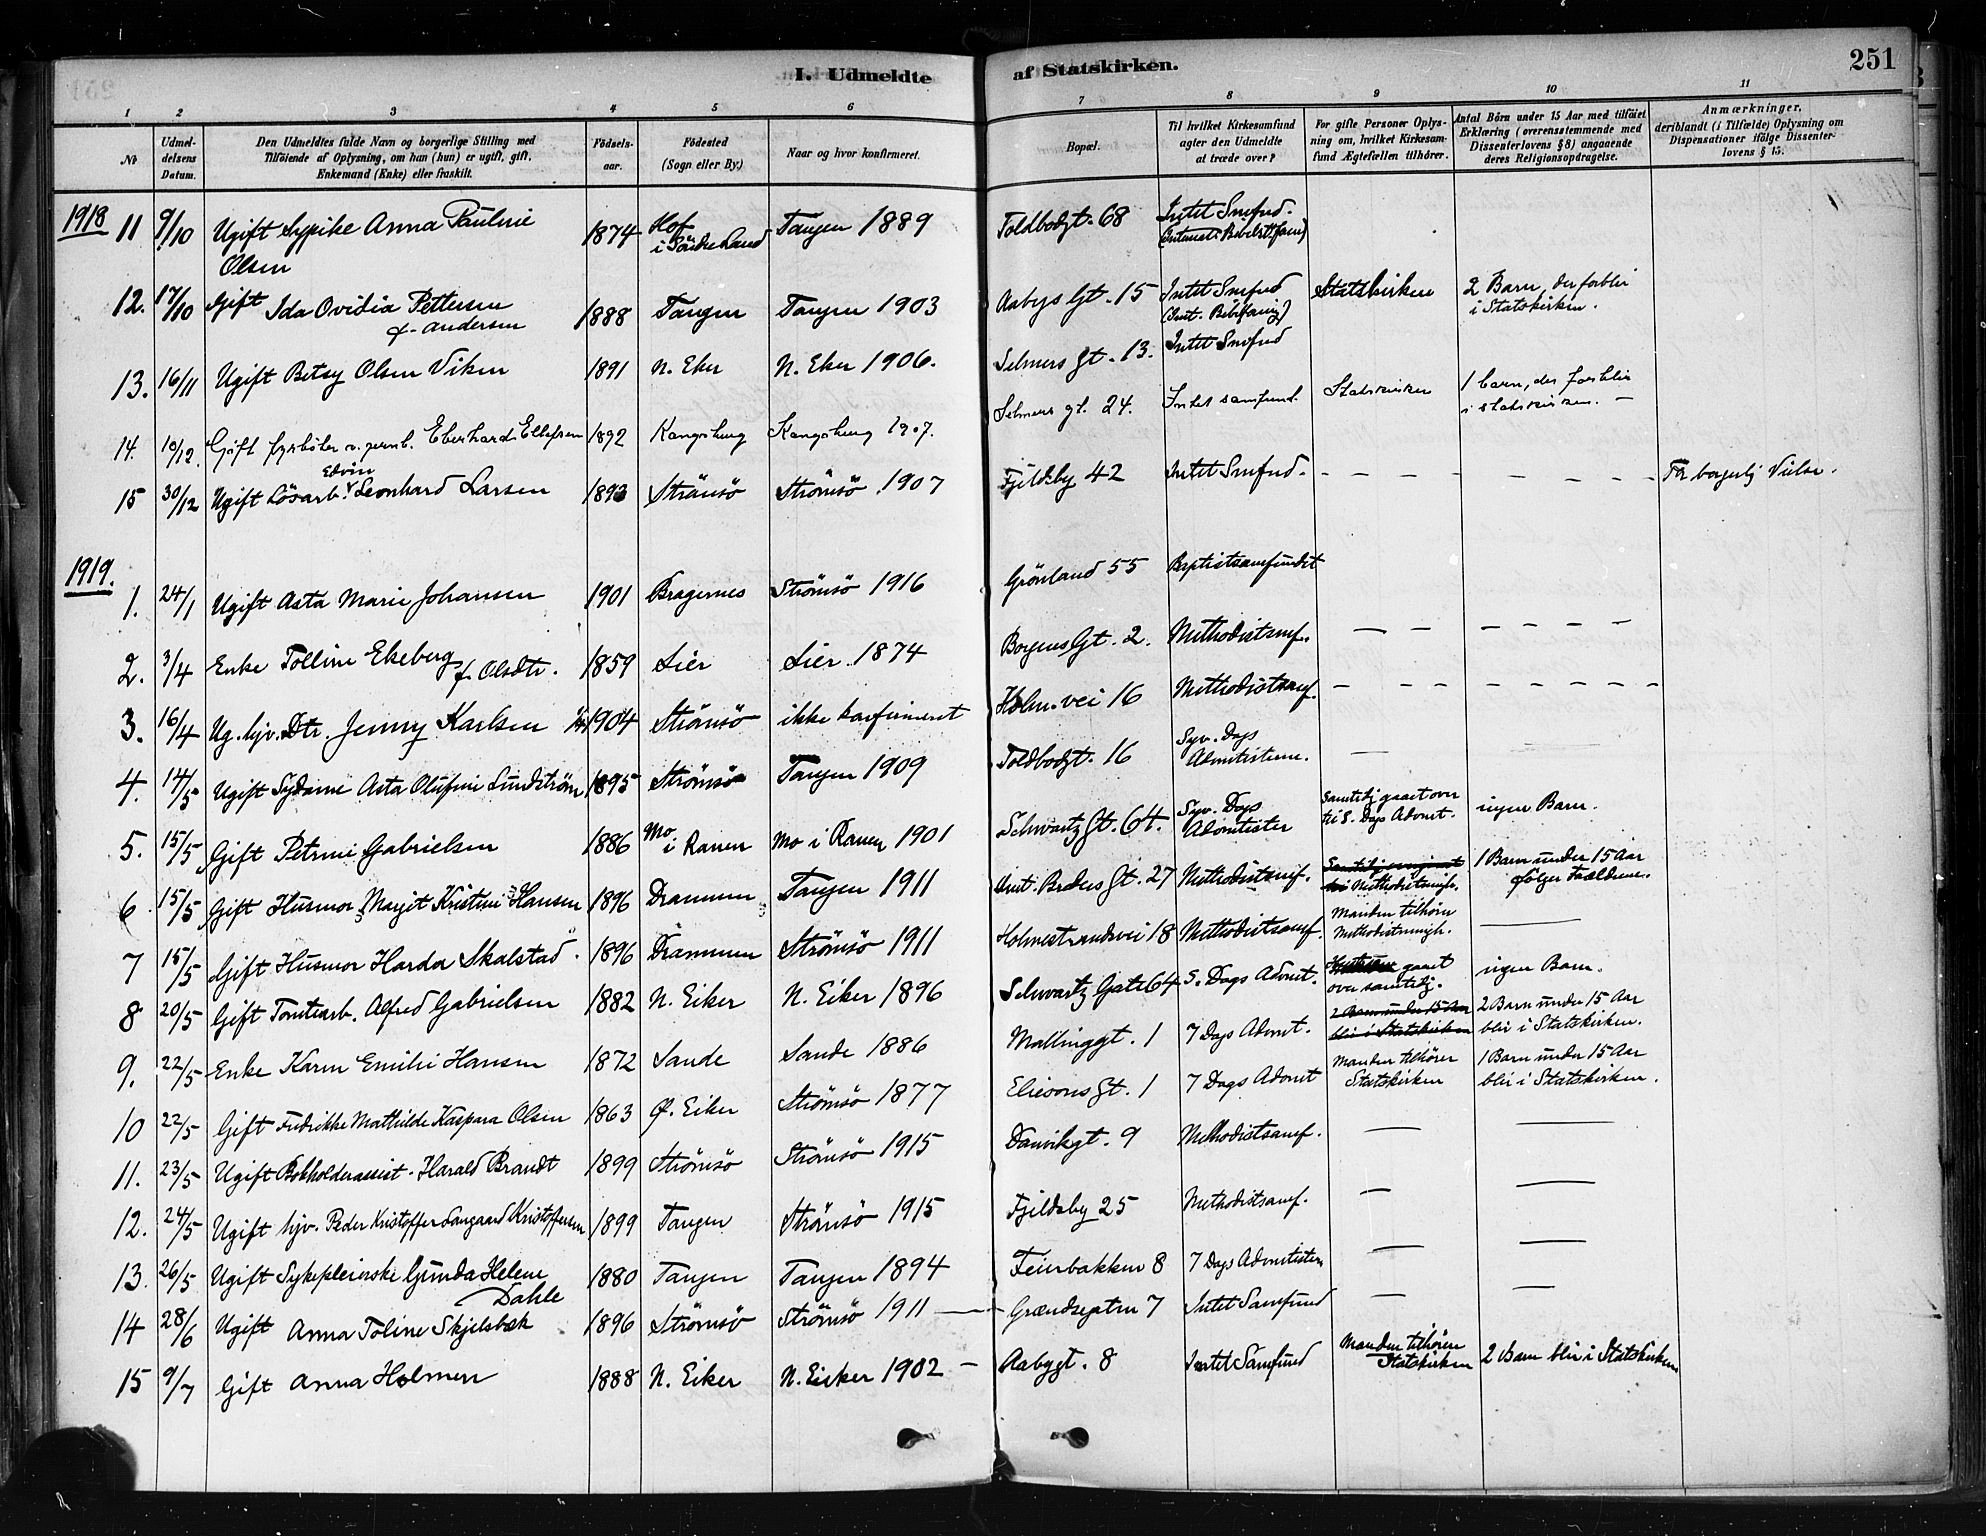 I. Udmeldte af Statskirken. 251
1 2 3 4 5 6 7 8 9 10 11
No
Udmeldelsens Datum.
Den Udmeldtes fulde Navn og borgerlige Stilling med
Tilföiende af Oplysning, om han (hun) er ugift, gift,
Enkemand (Enke) eller fraskilt.
Födselsaar.
Födested
(Sogn eller By.)
Naar og hvor konfirmeret.
Bopæl.
Til hvilket Kirkesamfund
agter den Udmeldte
at træde over?
For gifte Personer Oplysning om, hvilket Kirkesamfund Ægtefællen tilhörer.
Antal Börn under 15 Aar med tilföiet
Erklæring (overensstemmende med
Dissenterlovens § 8) angaaende
deres Religionsopdragelse.
Anmærkninger,
deriblandt (i Tilfælde) Oplysning om
Dispensationer ifölge Dissenterlovens § 15.
1918
11 9/10 Ugift Sypike Anna Pauline Olsen 1874 Hof i Söndre Land Tangen 1889 Toldbodgt. 68 Intet Smfnd.
12. 17/10 Gift Ida Ovidia Pettersen f. Andersen 1888 Tangen Tangen 1903 Aabys Gt. 15 Intet Smfnd Statskirken 2 Barn, der forblir i Statskirken.
13. 16/11 Ugift Betsy Olsen Viken 1891 N. Eker N. Eker 1906. Selmers Gt. 13. Intet Smfnd
14. 10/12. Gift fyrböter v. jernb. Eberhard Ellefsen 1892 Kongsberg Kongsberg 1907. Selmers gt. 24. Intet samfund. Statskirken 1 barn, der forblir i statskirken. —
15 30/12 Ugift Lösarb. Edvin Leonhard Larsen 1893 Strömsö Strömsö 1907 Fjeldsby 42 Intet Smfnd. — — — — — — — — For borgerlig Vielse.
1919.
1. 24/1 Ugift Asta Marie Johansen 1901 Bragernes Strömsö 1916 Grönland 55 Baptistsamfundet
2. 3/4 Enke Tolline Ekeberg f. Olsdtr. 1859 Lier Lier 1874 Borgens Gt. 2. Methodistsmf. — — — — — — —
3. 16/4 Ug. hjv. Dtr. Jenny Karlsen 1904 Strömsö ikke konfirmeret Holm. vei 16 Methodistsamf. — — — — — — — — —
4. 14/5 Ugift Sydame Asta Olufine Lundström 1895 Strömsö Tangen 1909 Toldbodgt. 16 Syv. Dags Adventisterne. — —
5. 15/5 Gift Petrine Gabrielsen 1886 Mo i Ranen Mo i Ranen 1901 Schwartz Gt. 64. Syv. Dags Adventister Samtidig gaaet over til S. Dags Advent. ingen Barn.
6 15/5 Gift Husmor Margit Kristine Hansen 1896 Drammen Tangen 1911 Gt. 27 Methodistsmf. Methodistmenigh. 1 Barn under 15 Aar følger Forældrene.
7 15/5 Gift Husmor Harda Skalstad. 1896 Drammen Strömsö 1911 Holmestrandsvei 18 Methodistsamf. Manden tilhörer Methodistmenigh. —
8 20/5 Gift Tomtearb. Alfred Gabrielsen 1882 N. Eiker N. Eiker 1896 Schwartz Gate 64 S. Dags Advent. Hustruen gaaet over samtidig. ingen Barn.
9. 22/5 Enke Karen Emilie Hansen 1872 Sande Sande 1886 Mallinggt. 1 7 Dags Advent. 2 Barn under 15 Aar blir i Statskirken 2 Barn under 15 Aar blir i Statskirken.
10 22/5 Gift Fredrikke Mathilde Kaspara Olsen 1863 Ø. Eiker Strömsö 1877 Eliesons Gt. 1 7 Dags Advent Manden tilhörer Statskirken 1 Barn under 15 Aar blir i Statskirken.
11. 23/5 Ugift Bokholderassist. Harald Brandt 1899 Strömsö Strömsö 1915 Danvikgt. 9 Methodistsamf. — —
12. 24/5 Ugift hjv. Peder Kristoffer Kristoffersen 1899 Tangen Strömsö 1915 Fjeldsby 25 Methodistsamf. — —
13. 26/5 Ugift Sykepleierske Gunda Helene Dahle 1880 Tangen Tangen 1894 Feierbakken 8 7 Dags Adventisten — —
14 28/6 Ugift Anna Toline Skjelsbæk 1896 Strömsö Strömsö 1911 — Grændsegaten 7 Intet Samfund — —
15 9/7 Gift Anna Holmen 1888 N. Eiker N. Eiker 1902 — Aabygt. 8 Intet Samfund Manden tilhörer Statskirken 2 Barn blir i Statskirken